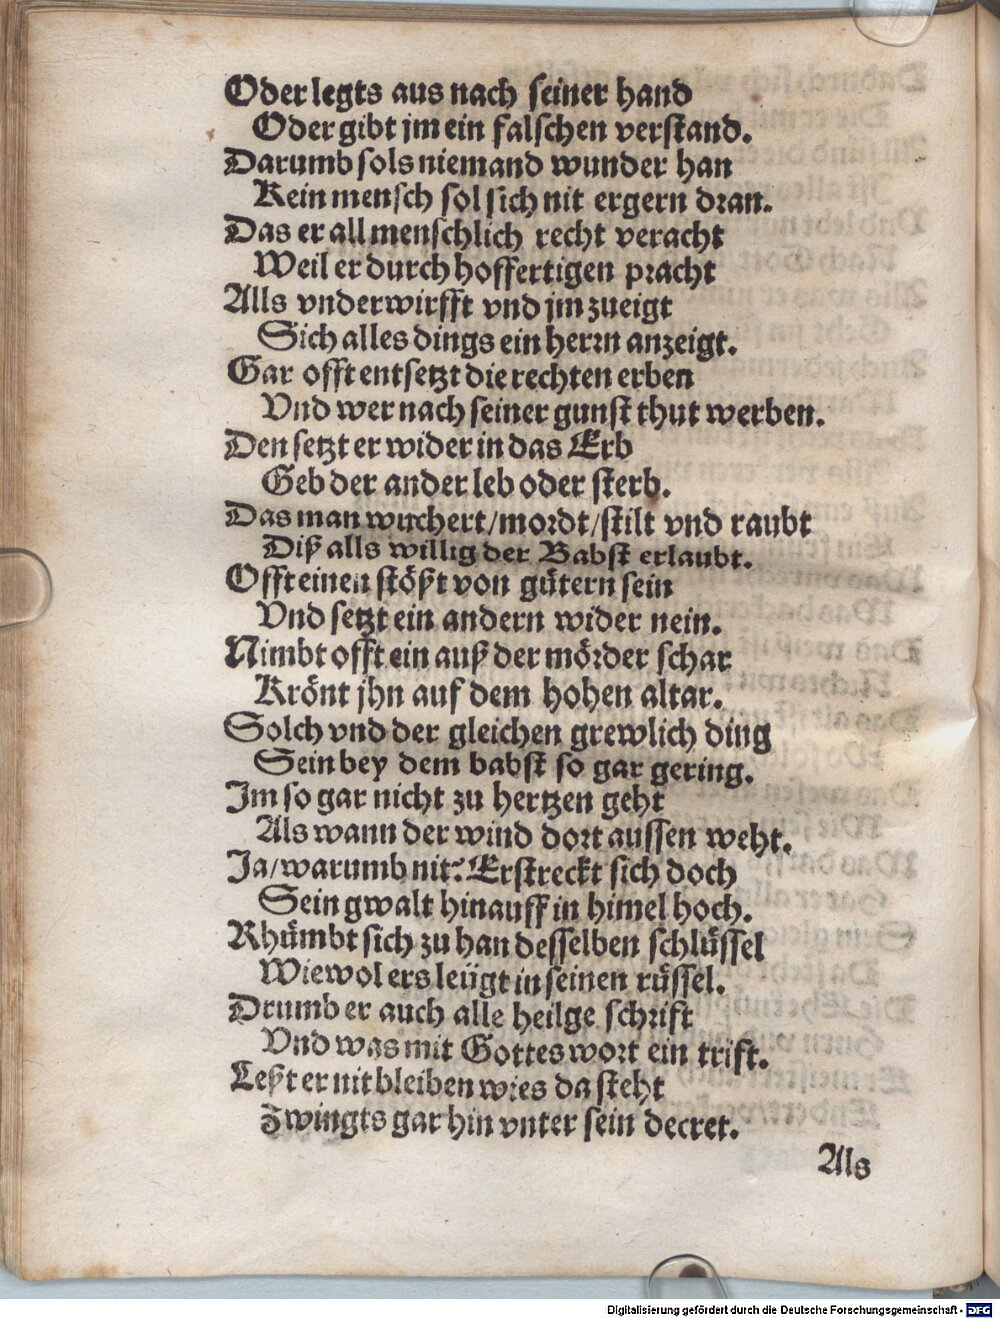 Oder legts aus nach seiner hand
Oder gibt jm ein falschen verstand.
Darumb sols niemand wunder han
Kein mensch sol sich nit ergern dran.
Das er all menschlich recht veracht
Weil er durch hoffertigen pracht
Alls vnderwirfft vnd jm zueigt
Sich alles dings ein herrn anzeigt.
Gar offt entsetzt die rechten erben
Vnd wer nach seiner gunst thut werben.
Den setzt er wider in das Erb
Geb der ander leb oder sterb.
Das man wuchert/mordt/stilt vnd raubt
Diß alls willig der Babst erlaubt.
Offt einen stößt von gütern sein
Vnd setzt ein andern wider nein.
Nimbt offt ein auß der mörder schar
Krönt jhn auf dem hohen altar.
Solch vnd der gleichen grewlich ding
Sein bey dem babst so gar gering.
Im so gar nicht zu hertzen geht
Als wann der wind dort aussen weht.
Ja/warumb nit? Erstreckt sich doch
Sein gwalt hinauff in himel hoch.
Rhümbt sich zu han desselben schlüssel
Wiewol ers leügt in seinen rüssel.
Drumb er auch alle heilge schrift
Vnd was mit Gottes wort ein trift.
Leßt er nit bleiben wies da steht
Zwingts gar hin vnter sein decret.
Als
Digitalisierung gefördert durch die Deutsche Forschungsgemeinschaft - DFG